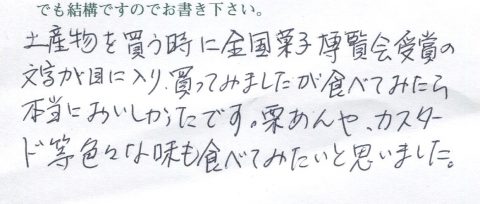 でも結構ですのでお書き下さい。
土産物を買う時に全国菓子博覧会受賞の
文字が目に入り、買ってみましたが食べてみたら
本当においしかったです。栗あんや、カスター
ド等色々な味も食べてみたいと思いました。